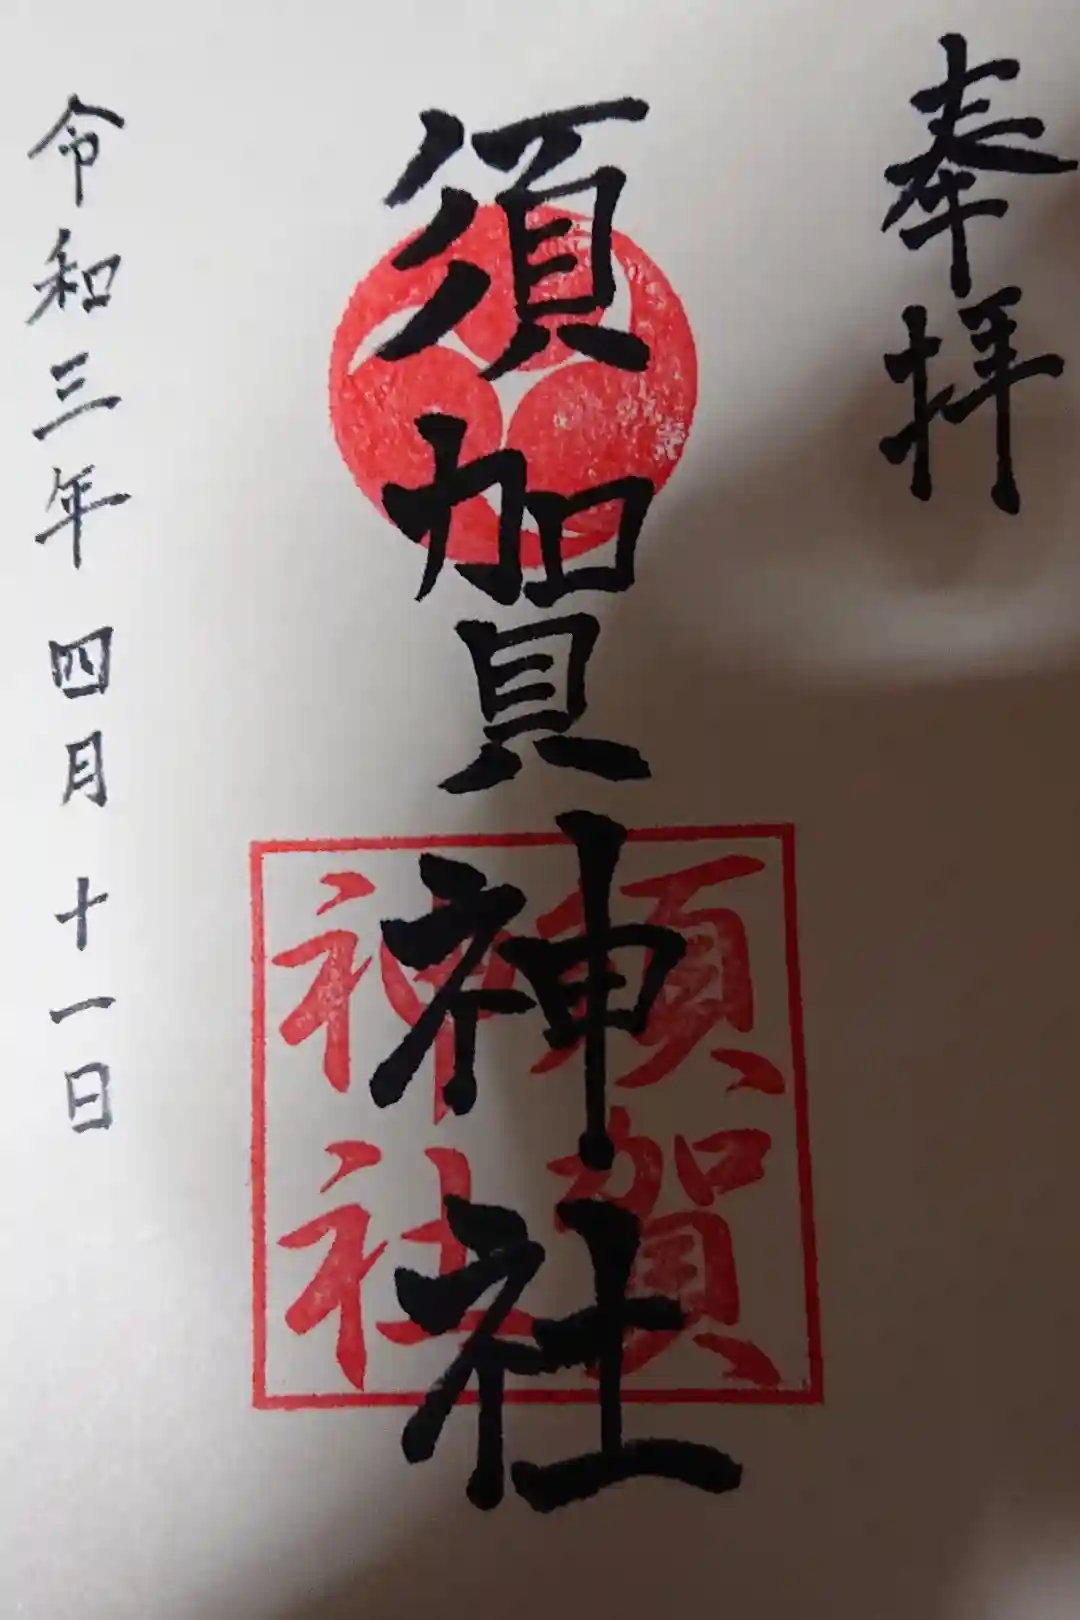 奉拝
須賀神社
須賀
神社
令和三年 四月十一日